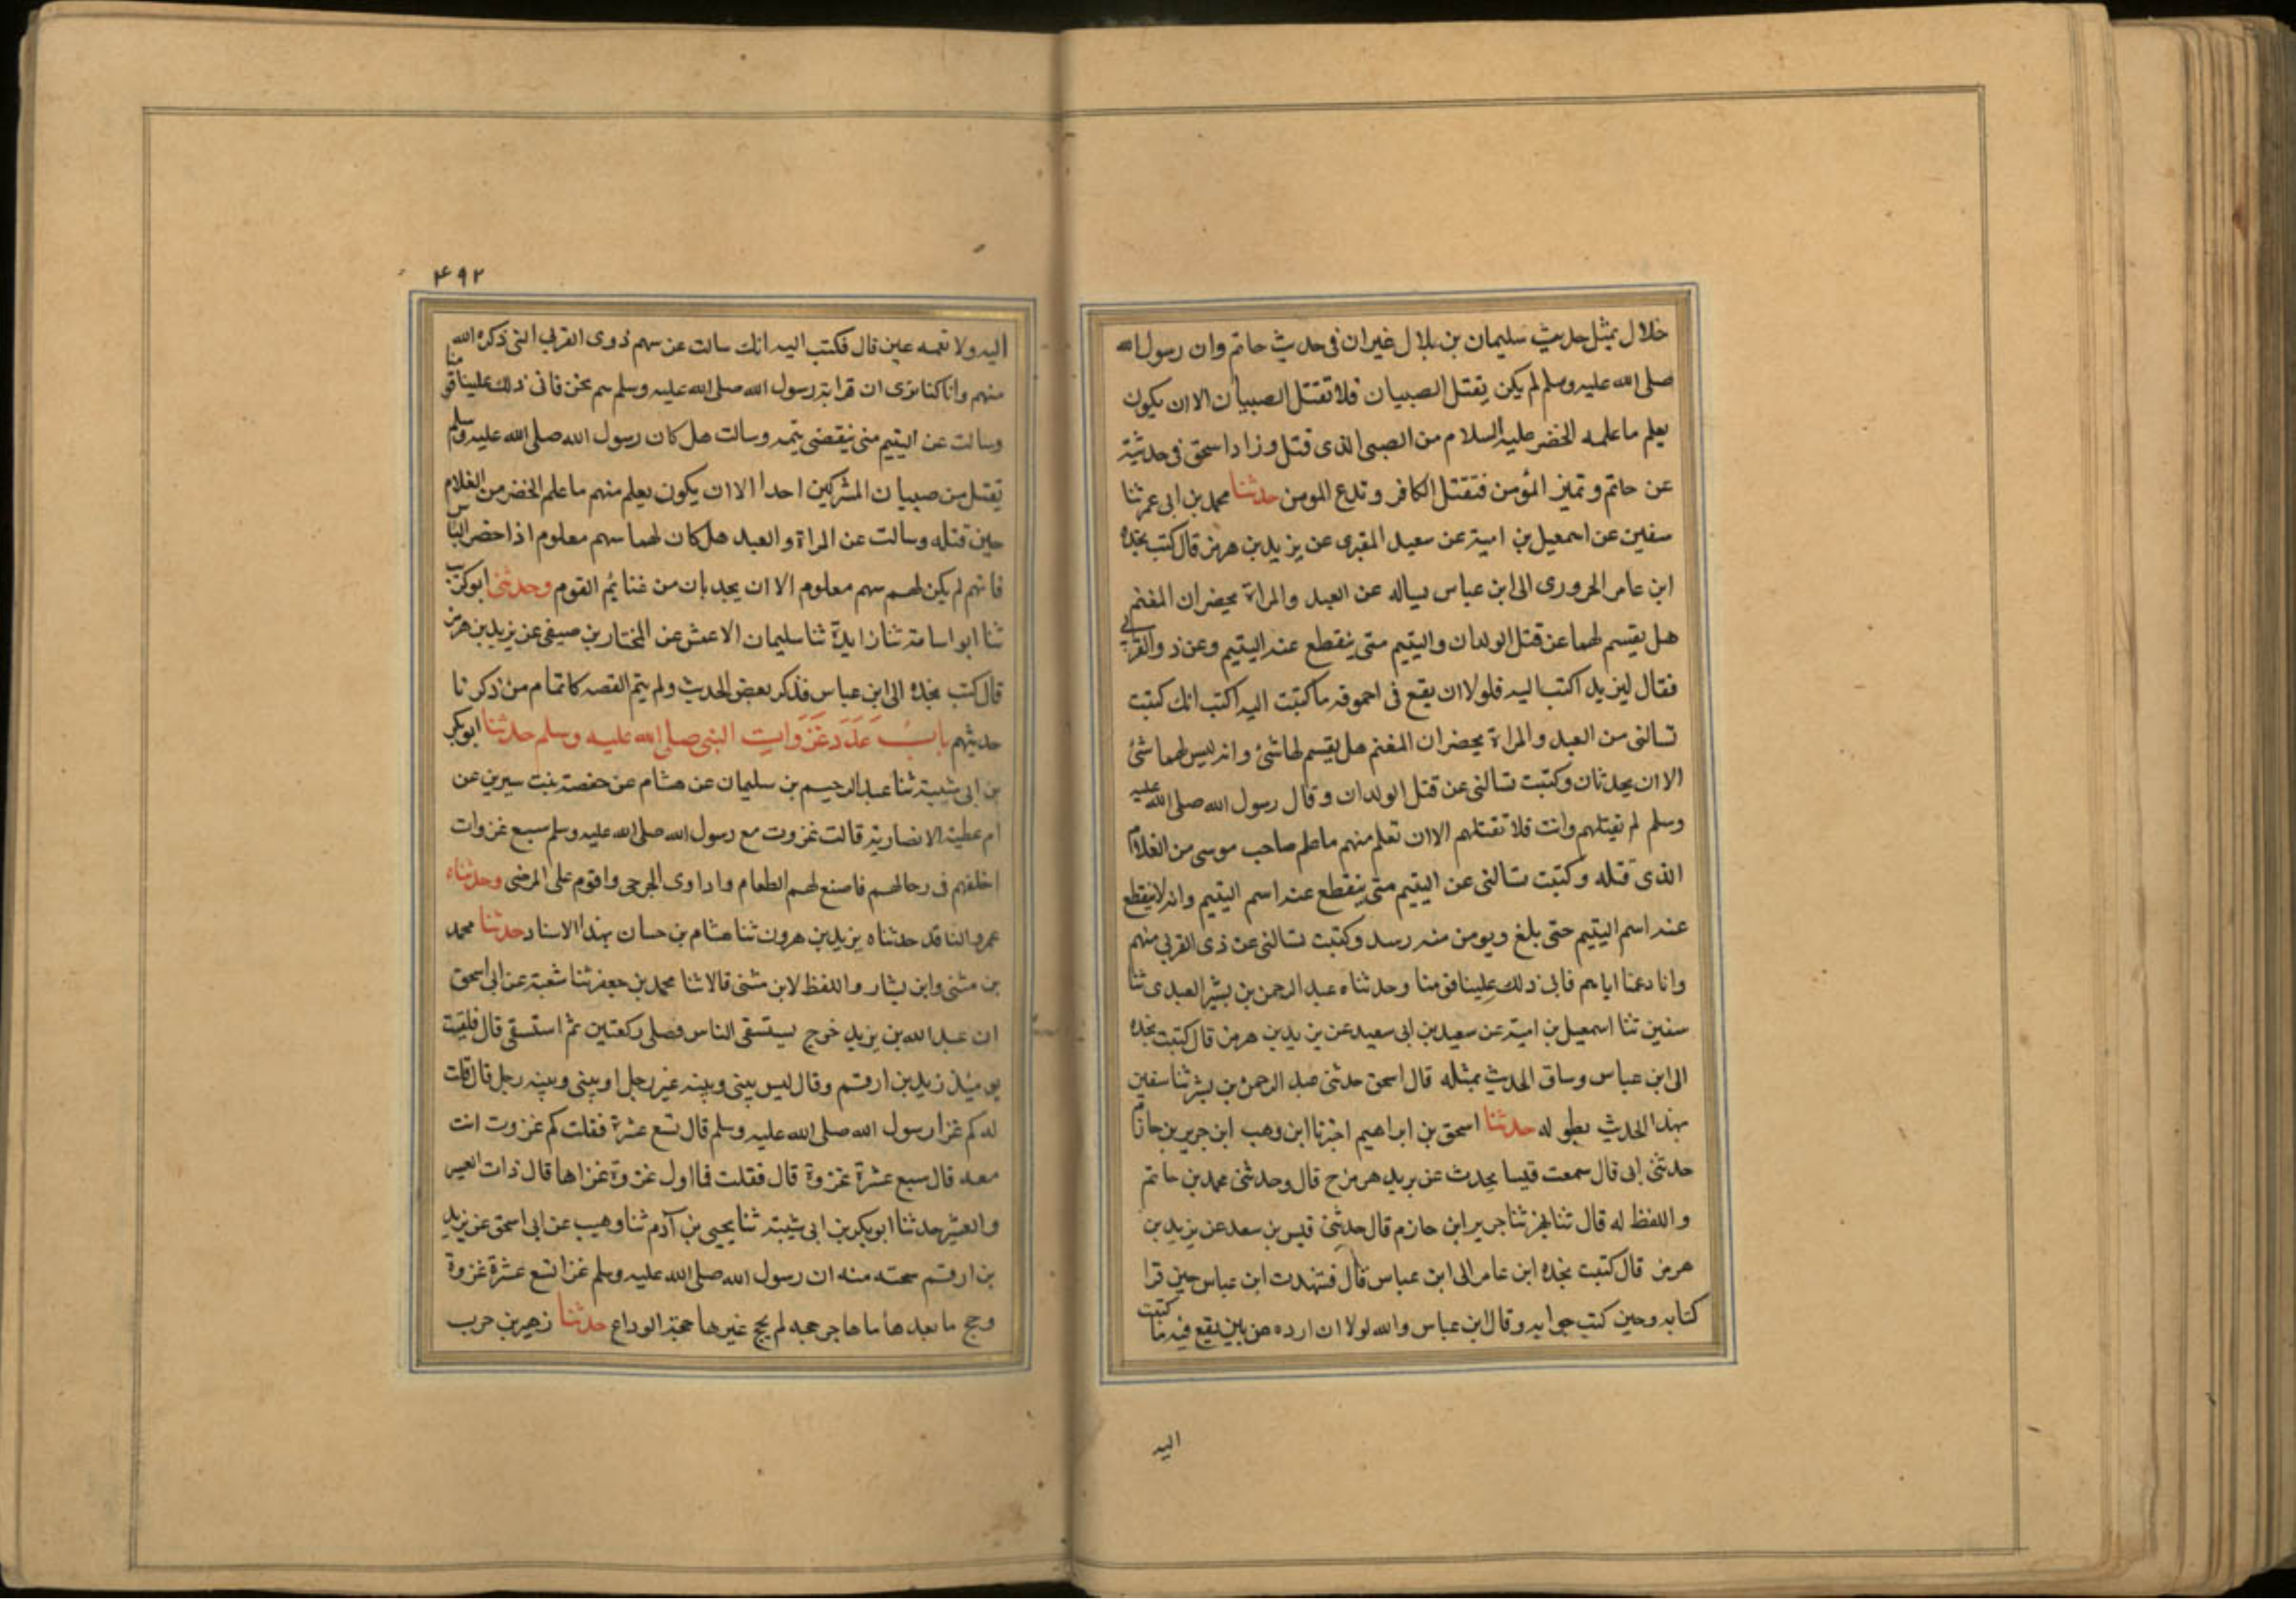 خلال بمثل حديث سليمان بن بلال غير ان فى حديث حاتم وان رسول الله
صلى الله عليه وسلم لم يكن يقتل الصبيان فلا تقتل الصبيان الا ان يكون
يعلم ما علمه الخضر عليه السلام من الصبى الذى قتل وزاد اسحق فى حديثه
عن حاتم وتميز المؤمن فتقتل الكافر وتدع المومن حدثنا محمد بن ابى عمر ثنا
سفين عن اسمعيل بن امية عن سعيد المقبرى عن يزيد بن هرمز قال كتب نجده
ابن عامر الحرورى الى ابن عباس يساله عن العبد والمراة يحضران المغنم
هل يقسم لهما عن قتل الولدان واليتيم متى ينقطع عنه اليتيم وعن ذو القربى
فقال ليزيد اكتب اليه فلولا ان يقع فى احموقه ما كتبت اليه اكتب انك كتبت
تسالنى من العبد والمراة يحضران المغنم هل يقسم لها شئ وانه ليس لهما شئ
الا ان يحذيان وكتبت تسالنى عن قتل الولدان وقال رسول الله صلى الله عليه
وسلم لم يقتلهم وانت فلا تقتلهم الا ان تعلم منهم ما علم صاحب موسى من الغلام
الذى قتله وكتبت تسالنى عن اليتيم متى ينقطع عنه اسم اليتيم وانه لا ينقطع
عنه اسم اليتيم حتى بلغ ويومن منه رسد وكتبت تسالنى عن ذى القربى منهم
وانا دعنا اياهم فابى ذلك علينا قومنا وحدثناه عبد الرحمن بن بشر العبدى ثنا
سفين ثنا اسمعيل بن امية عن سعيد بن ابى سعيد عن يزيد بن هرمز قال كتبت نجده
الى ابن عباس وساق الحديث بمثله قال اسحق حدثنى عبد الرحمن بن بشر ثنا سفين
بهذا الحديث بطوله حدثنا اسحق بن ابراهيم اخبرنا ابن وهب ابن جرير بن حازم
حدثنى ابى قال سمعت قيسا يحدث عن يريد هرمز ح قال وحدثنى محمد بن حاتم
واللفظ له قال ثنا بهز ثنا جرير ابن حازم قال حدثنى قيس بن سعد عن يزيد بن
هرمز قال كتبت نجده ابن عامر الى ابن عباس قال فشهدت ابن عباس حين قرا
كتابه وحين كتب جوابه وقال ابن عباس والله لولا ان ارده عن يقع فيه ما كتبت
اليه
٤٩٢
اليه ولا نعمه عين قال فكتب اليه انك سالت عن سهم ذوى القربى التى ذكره الله
منهم وانا كنا نرى ان قرابة رسول الله صلى الله عليه وسلم هم نحن فابى ذلك علينا قومنا
وسالت عن اليتيم متى ينقضى يتمه وسالت هل كان رسول الله صلى الله عليه وسلم
يقتل من صبيان المشركين احدا الا ان يكون يعلم منهم ما علم الخضر من الغلام
حين قتله وسالت عن المراة والعبد هل كان لهما سهم معلوم اذا حضر الباس
فانهم لم يكن لهم سهم معلوم الا ان يحديان من غنايم القوم وحدثنى ابو كريب
ثنا ابو اسامة ثنا زايدة ثنا سليمان الاعمش عن المختار بن صيفى عن يزيد بن هرمز
قال كتب نجده الى ابن عباس فذكر بعض الحديث ولم يتم القصه كاتمام من ذكرنا
حديثهم باب عدد غزوات النبى صلى الله عليه وسلم حدثنا ابو بكر
بن ابى شيبة ثنا عبد الرحيم بن سليمان عن هشام عن حفصة بنت سيرين عن
ام عطية الانصارية قالت غزوت مع رسول الله صلى الله عليه وسلم سبع غزوات
اخلفهم فى رحالهم فاصنع لهم الطعام واداوى الجرحى واقوم على المرضى وحدثناه
عمرو الناقد حدثناه يزيد بن هرون ثنا هشام بن حسان بهذا الاسناد حدثنا محمد
بن مثنى وابن بشار واللفظ لابن مثنى قالا ثنا محمد بن جعفر ثنا شعبة عن ابى اسحق
ان عبد الله بن يزيد خرج ليستسقى الناس فصلى ركعتين ثم استسقى قال فلقيت
يوميئذ زيد بن ارقم وقال ليس بينى وبينه غير رجل او بينى وبينه رجل قال قلت
له كم غزا رسول الله صلى الله عليه وسلم قال تسع عشرة فقلت كم غزوت انت
معه قال سبع عشرة غزوة قال فقلت فما اول غزوة غزاها قال ذات العسير
والعشير حدثنا ابو بكر بن ابى شيبة ثنا يحيى بن آدم ثنا وهيب عن ابى اسحق عن زيد
بن ارقم سمعته منه ان رسول الله صلى الله عليه وسلم غزا تسع عشرة غزوة
وحج ما بعد ها ما هاجر حجه لم يحج غيرها حجة الوداع حدثنا زهير بن حرب